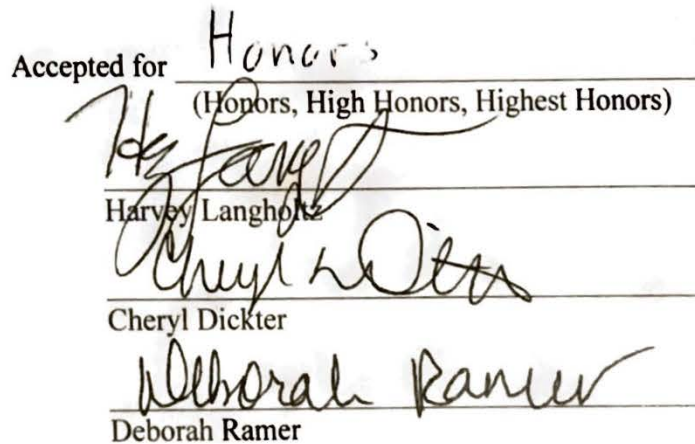 Accepted for Honors
(Honors, High Honors, Highest Honors)
Harvey Langholtz
Cheryl Dickter
Deborah Ramer
Deborah Ramer